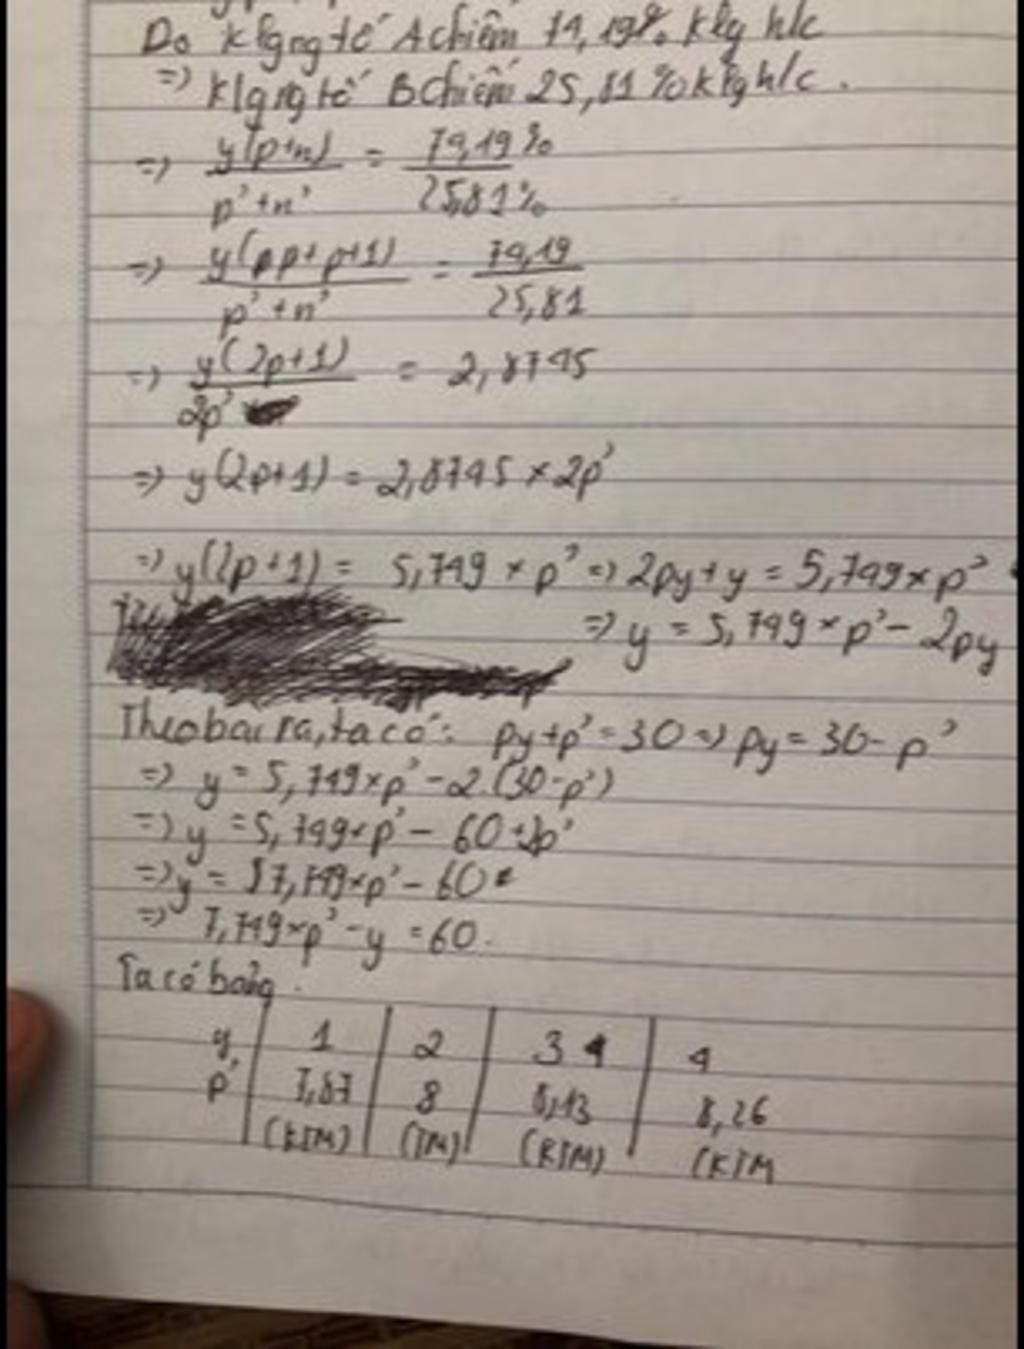 Do klg ng tố A chiếm 74,19% klg h/c
=> klg ng tố B chiếm 25,81% klg h/c.
=> y(p+n) / p'+n' = 74,19% / 25,81%
=> y(pp+p+1) / p'+n' = 74,19 / 25,81
=> y(2p+1) / 2p' = 2,8745
=> y(2p+1) = 2,8745 × 2p'
=> y(2p+1) = 5,749 × p' => 2py+y = 5,749×p'
=> y = 5,749×p' - 2py
Theo bài ra, ta có: py+p' = 30 => py = 30-p'
=> y = 5,749×p' - 2.(30-p')
=> y = 5,749×p' - 60+2p'
=> y = 7,749×p' - 60
=> 7,749×p' - y = 60.
Ta có bảng.
y 1 2 3 4
p' 7,87 8 8,13 8,26
(KTM) (TM) (KTM) (KTM